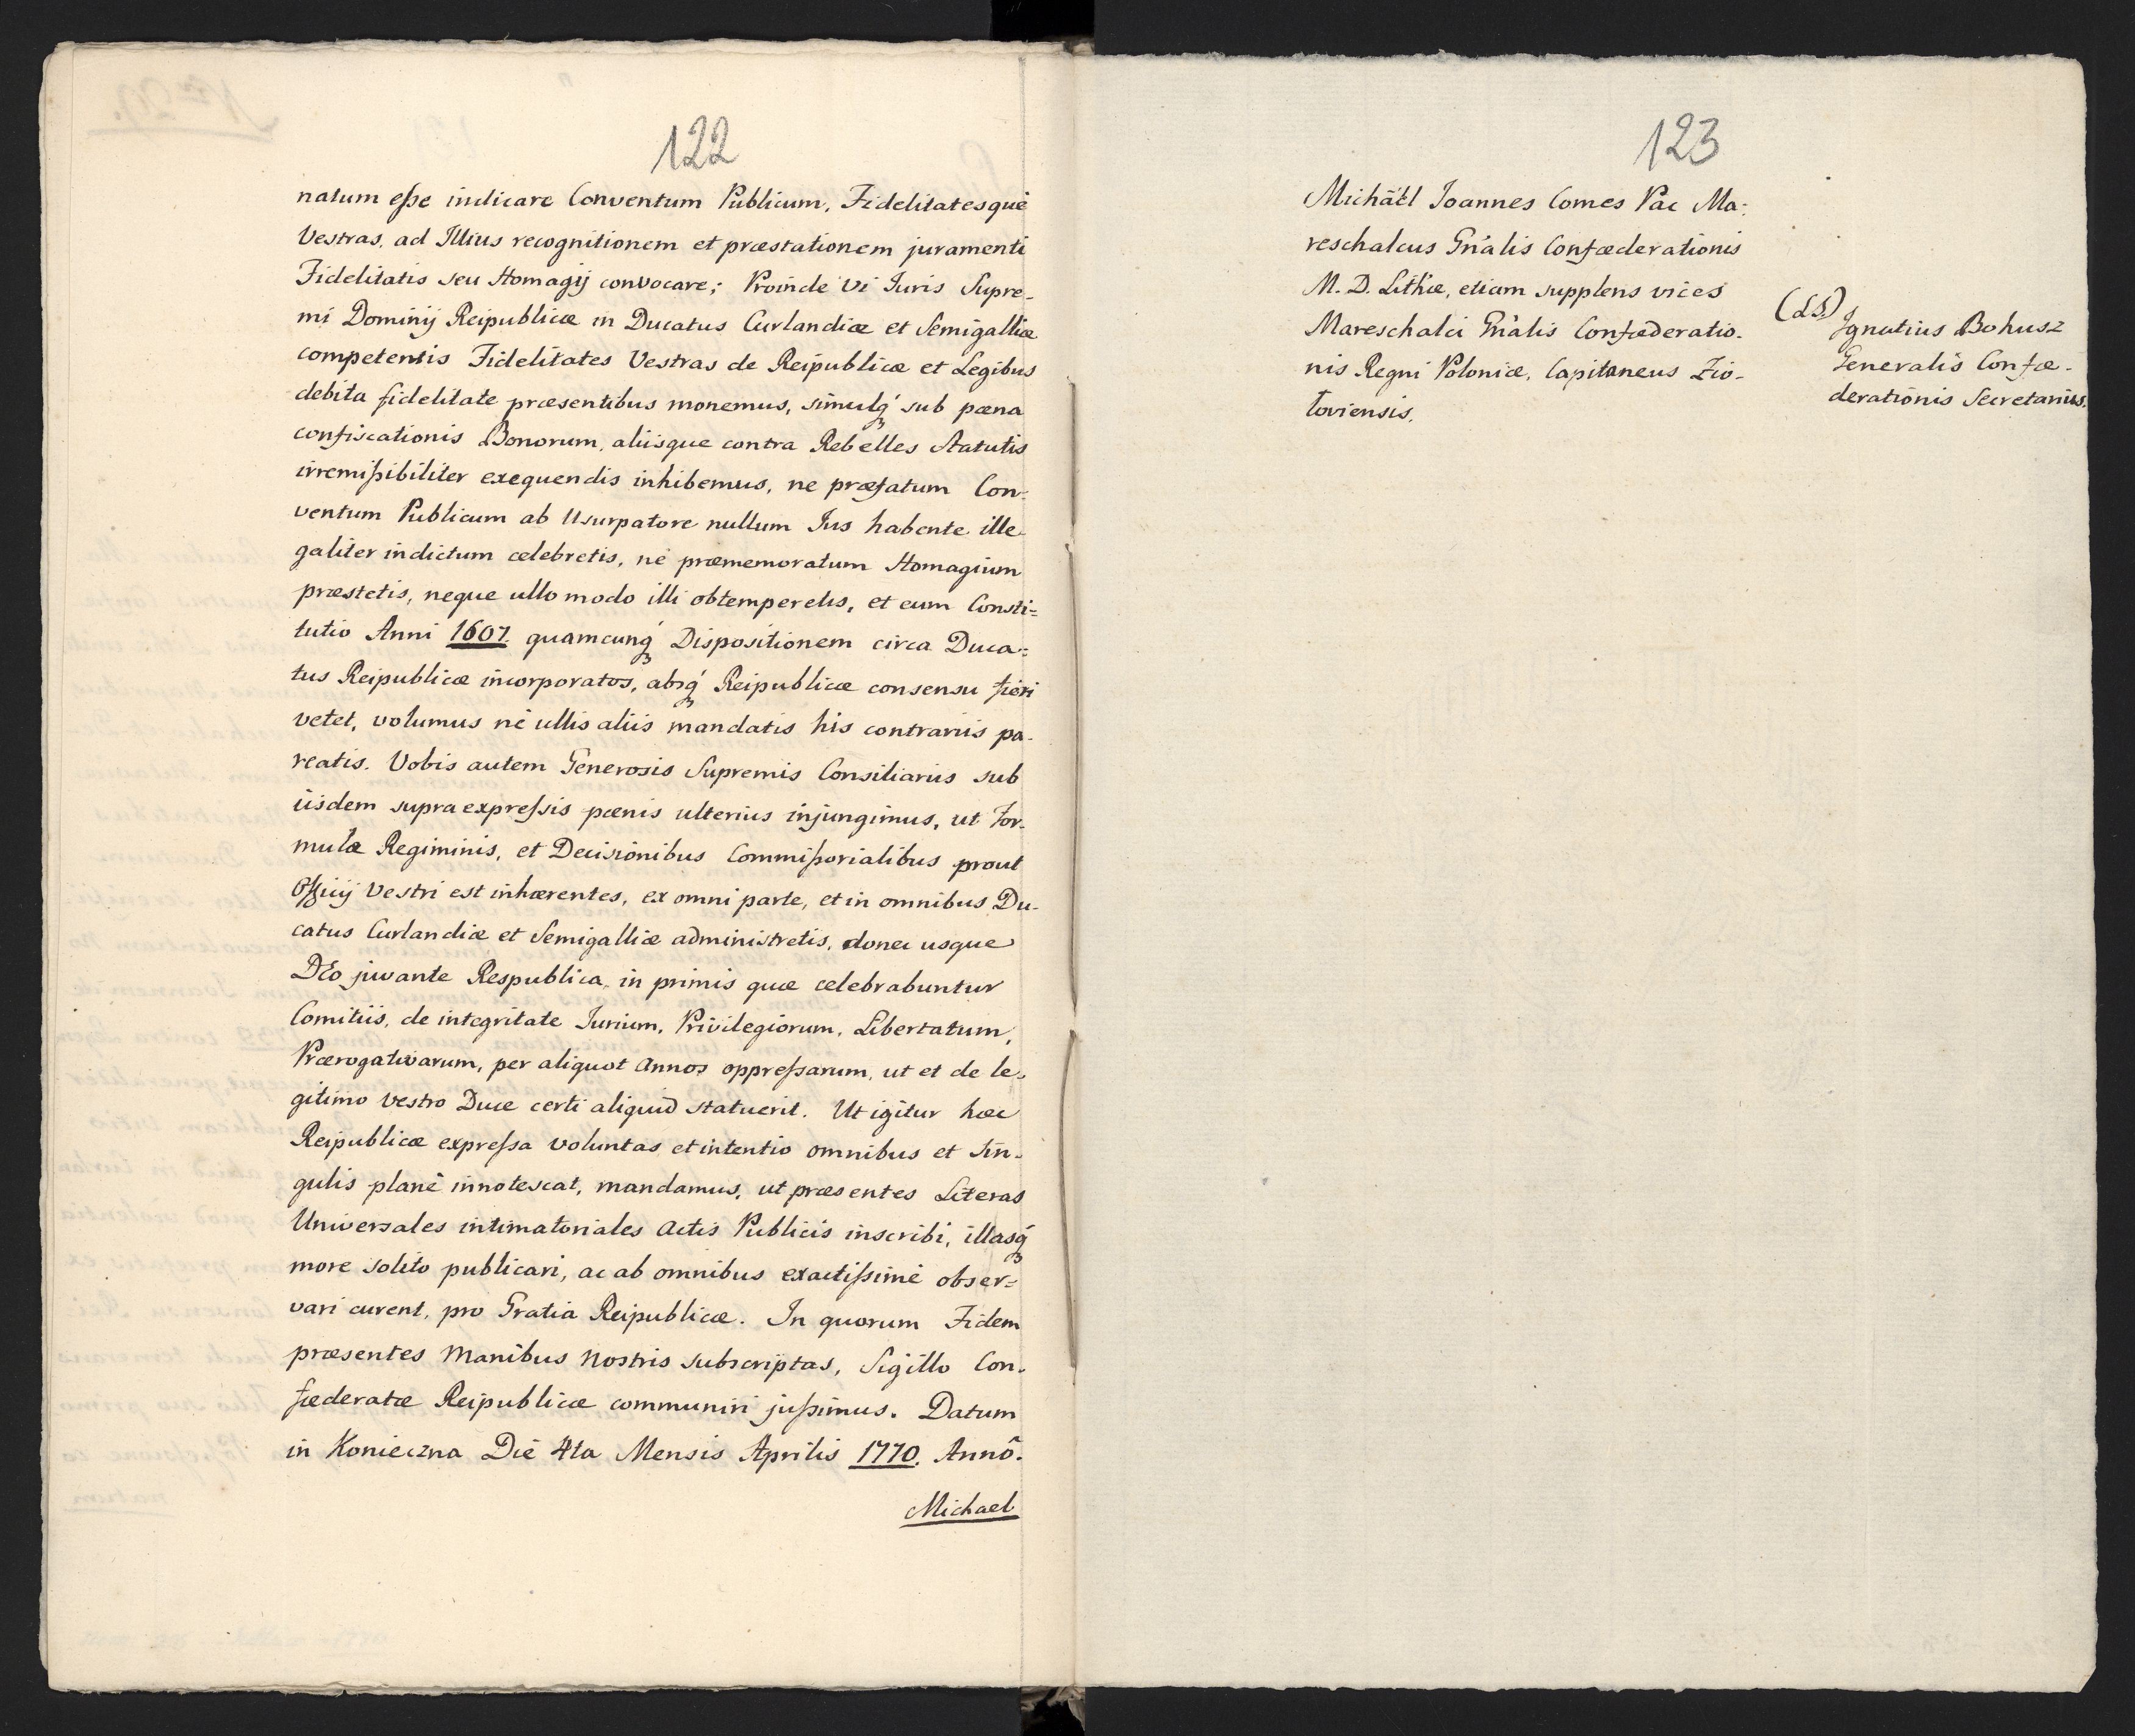 122
natum esse indicare Conventum Publicum, Fidelitatesque
Vestras, ad Illius recognitionem et præstationem juramenti
Fidelitatis seu Homagij convocare; Proinde vi Juris Supre-
mi Dominij Reipublicæ in Ducatus Curlandiæ et Semigalliæ
competentis Fidelitates Vestras de Reipublicæ et Legibus
debita fidelitate præsentibus monemus, simulq́ sub pœna
confiscationis Bonorum, aliisque contra Rebelles Statutis
irremissibiliter exequendis inhibemus, ne præfatum Con-
ventum Publicum ab Usurpatore nullum Jus habente ille-
galiter indictum celebretis, ne præmemoratum Homagium
præstetis, neque ullo modo illi obtemperetis, et cum Consti=
tutio Anni 1607. quamcunq́ Dispositionem circa Duca=
tus Reipublicæ incorporatos, absq́ Reipublicæ consensu fieri
vetet, volumus nè ullis aliis mandatis his contrariis pa-
reatis. Vobis autem Generosis Supremis Consiliariis sub
iisdem supra expressis pœnis ulterius injungimus, ut For-
mulæ Regiminis, et Decisionibus Commissorialibus prout
Officij Vestri est inhærentes, ex omni parte, et in omnibus Du-
catus Curlandiæ et Semigalliæ administretis, donec usque
DEo juvante Respublica, in primis quæ celebrabuntur
Comitiis, de integritate Jurium, Privilegiorum, Libertatum,
Prærogativarum, per aliquot Annos oppressarum, ut et de le-
gitimo vestro Duce certi aliquid statuerit. Ut igitur hæc
Reipublicæ expressa voluntas et intentio omnibus et sin-
gulis planè innotescat, mandamus, ut præsentes Literas
Universales intimatoriales Actis Publicis inscribi, illasq́
more solito publicari, ac ab omnibus exactissimè obser=
vari curent, pro Gratia Reipublicæ. In quorum Fidem
præsentes Manibus Nostris subscriptas, Sigillo Con-
fœderatæ Reipublicæ communiri jussimus. Datum
in Konieczna Die 4ta Mensis Aprilis 1770. Annô.
Michael
123
Michaël Joannes Comes Pac Ma-
reschalcus Gnãlis Confœderationis
M. D. Lithiæ, etiam supplens vices
Mareschalci Gnãlis Confœderatio-
nis Regni Poloniæ, Capitaneus Zio-
loviensis.
(LS)
Ignatius Bohusz
Generalis Confœ-
derationis Secretarius.